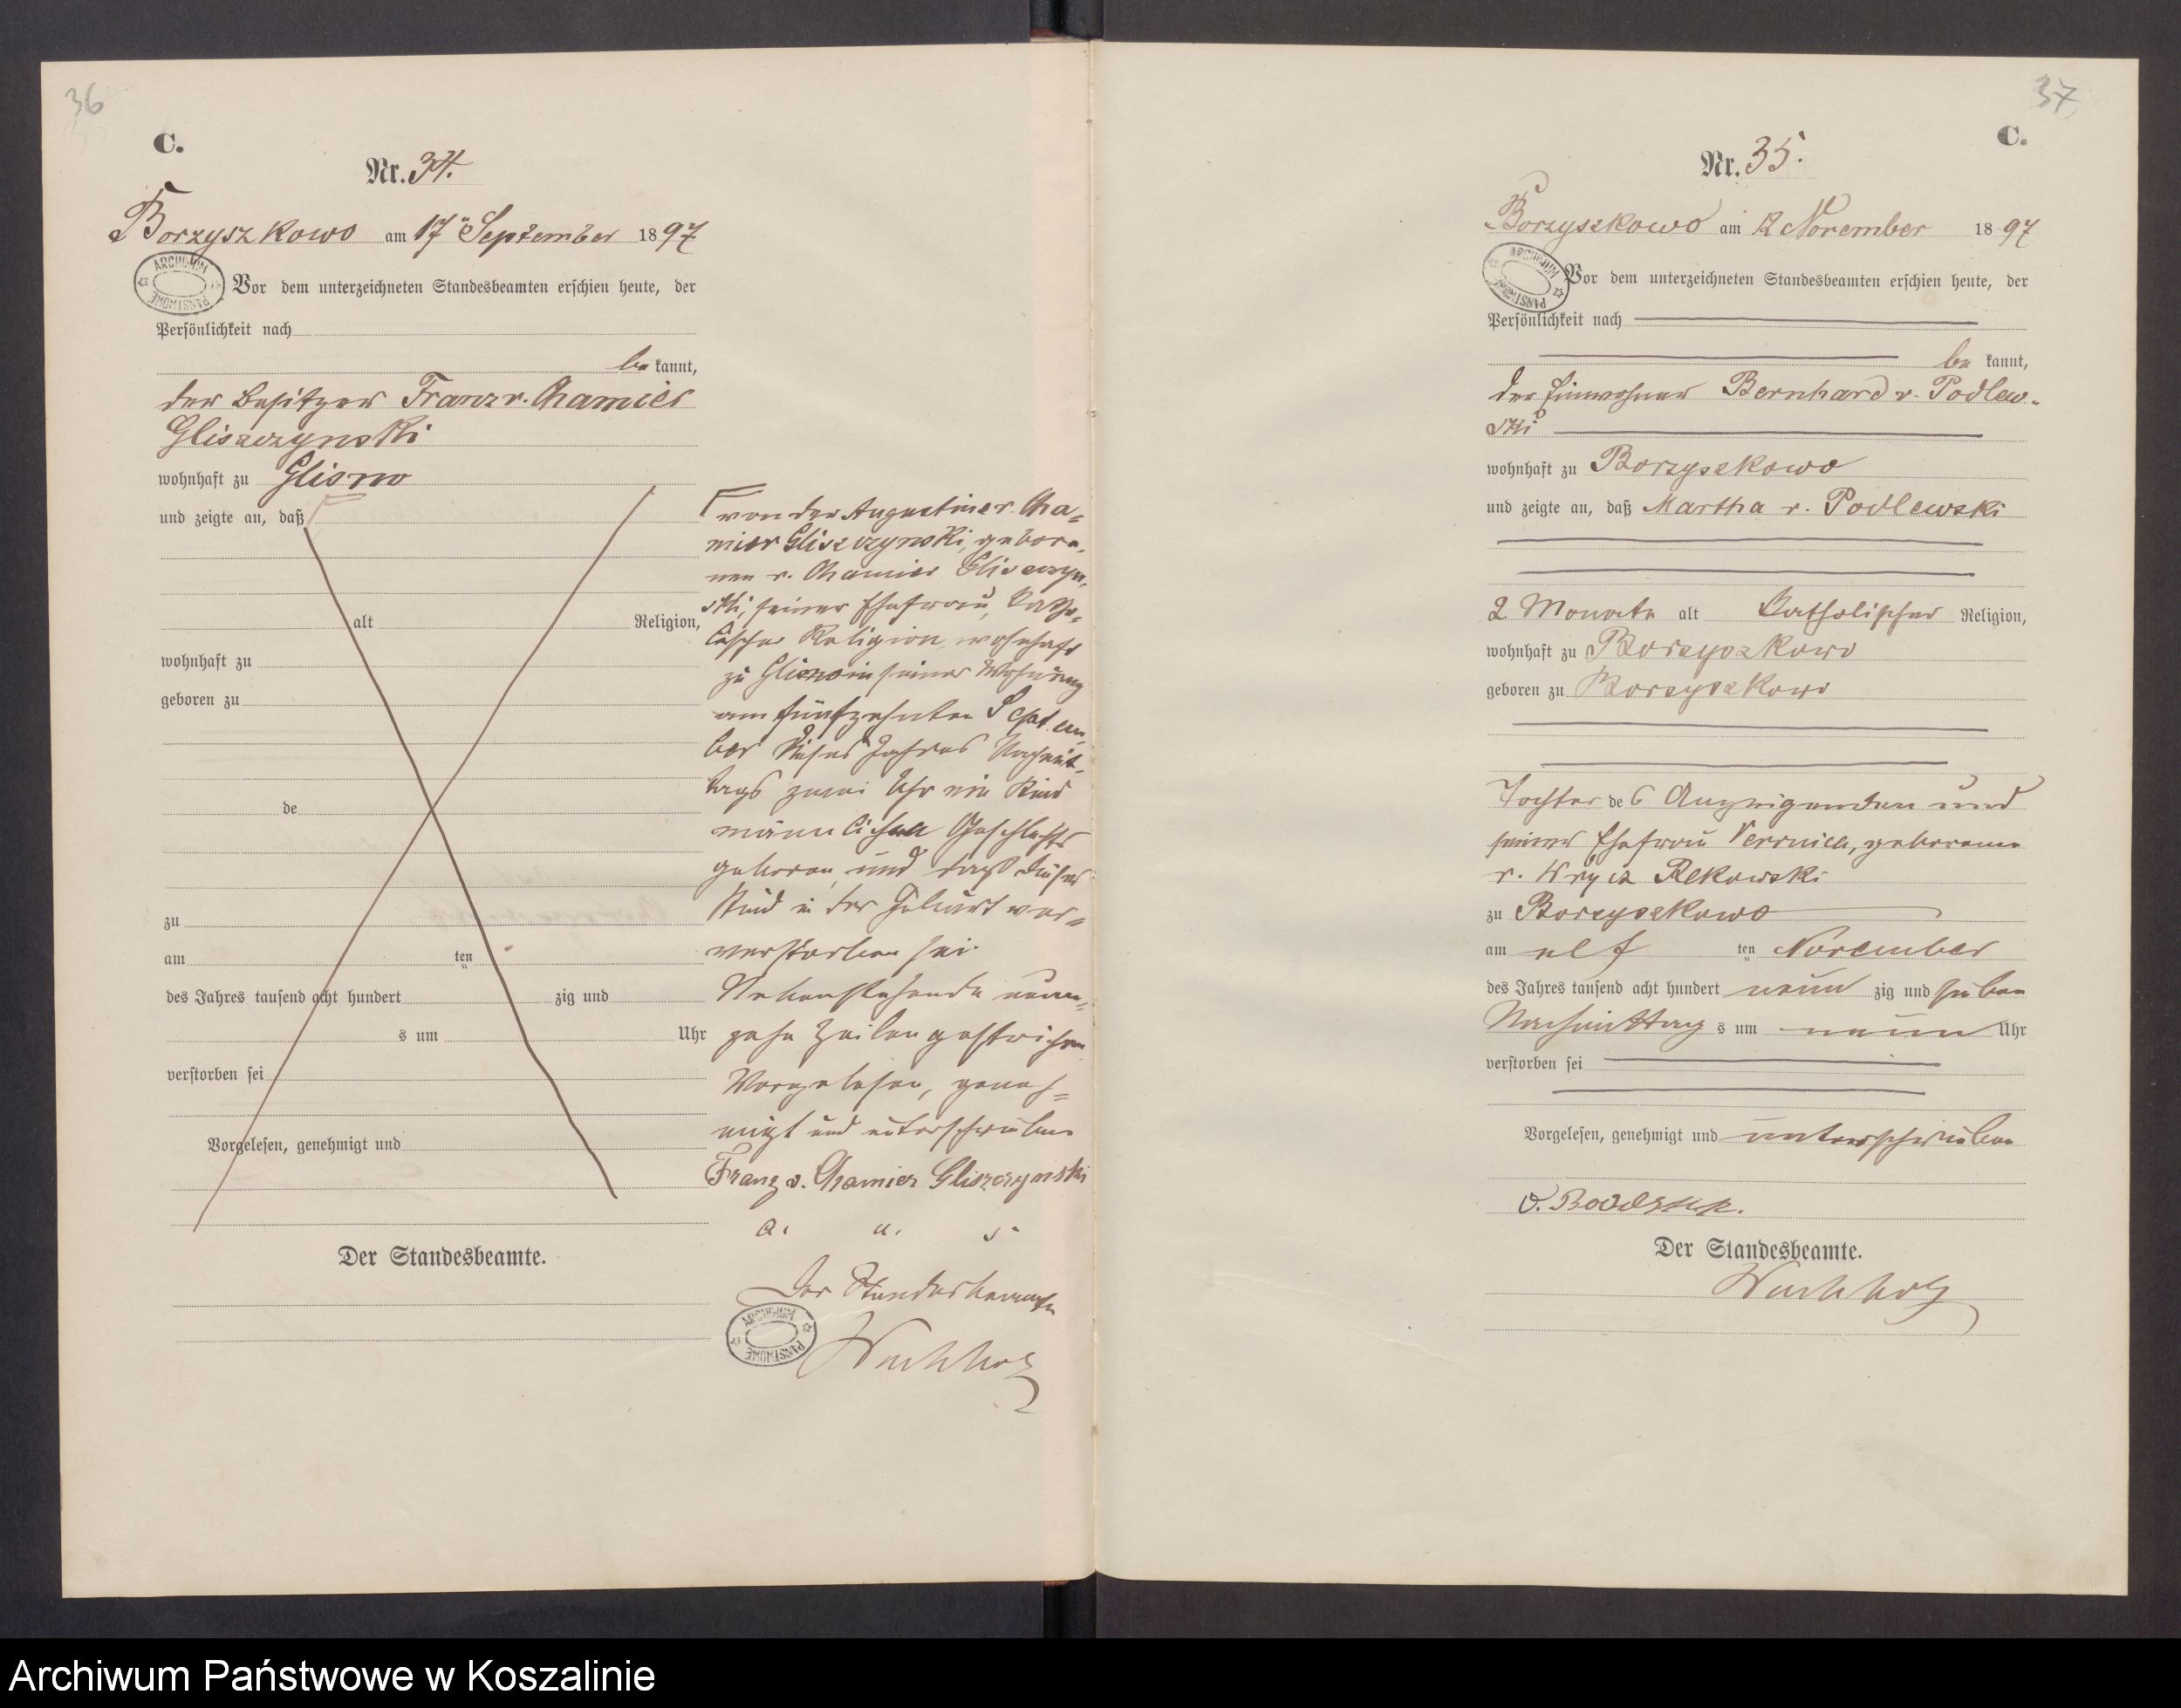 36
C.
Nr. 34.
Borzyszkowo am 17ten September 1897
ARCHIWUM PAŃSTWOWE
Vor dem unterzeichneten Standesbeamten erschien heute, der
Persönlichkeit nach
be kannt,
der Besitzer Franz v. Chamier
Gliszczynski
wohnhaft zu Glisno
und zeigte an, daß
alt Religion,
wohnhaft zu
geboren zu
de
zu
am ten
des Jahres tausend acht hundert zig und
s um Uhr
verstorben sei
Vorgelesen, genehmigt und
Der Standesbeamte.
von der Augustine v. Cha=
mier Gliszczynski, gebore,
nen v. Chamier Gliszczyn,
ski, seiner Ehefrau, katho=
lischer Religion, wohnhaft
zu Glisno in seiner Wohnung
am fünfzehnten Septem,
ber dieses Jahres Nachmit,
tags zwei Uhr ein Kind
männlichen Geschlechts
geboren und daß dieses
Kind in der Geburt ver=
verstorben sei.
Nebenstehende neun,
zehn Zeilen gestrichen
Vorgelesen, geneh=
migt und unterschrieben
Franz v. Chamier Gliszczynski
a. u. s.
Der Standesbeamte
Wachholz
ARCHIWUM PAŃSTWOWE
37
C.
Nr. 35.
Borzyszkowo am 12 November 1897
ARCHIWUM PAŃSTWOWE
Vor dem unterzeichneten Standesbeamten erschien heute, der
Persönlichkeit nach
be kannt,
der Einwohner Bernhard v. Podlew-
ski
wohnhaft zu Borzyszkowo
und zeigte an, daß Martha v. Podlewski
2 Monate alt Katholischer Religion,
wohnhaft zu Borzyszkowo
geboren zu Borzyszkowo
Tochter des Anzeigenden und
seiner Ehefrau Veronica, geborene
v. Wrycz Rekowski
zu Borzyszkowo
am elf ten November
des Jahres tausend acht hundert neun zig und sieben
Nachmittag s um neun Uhr
verstorben sei
Vorgelesen, genehmigt und unterschrieben
v.
Der Standesbeamte.
Wachholz
Archiwum Państwowe w Koszalinie